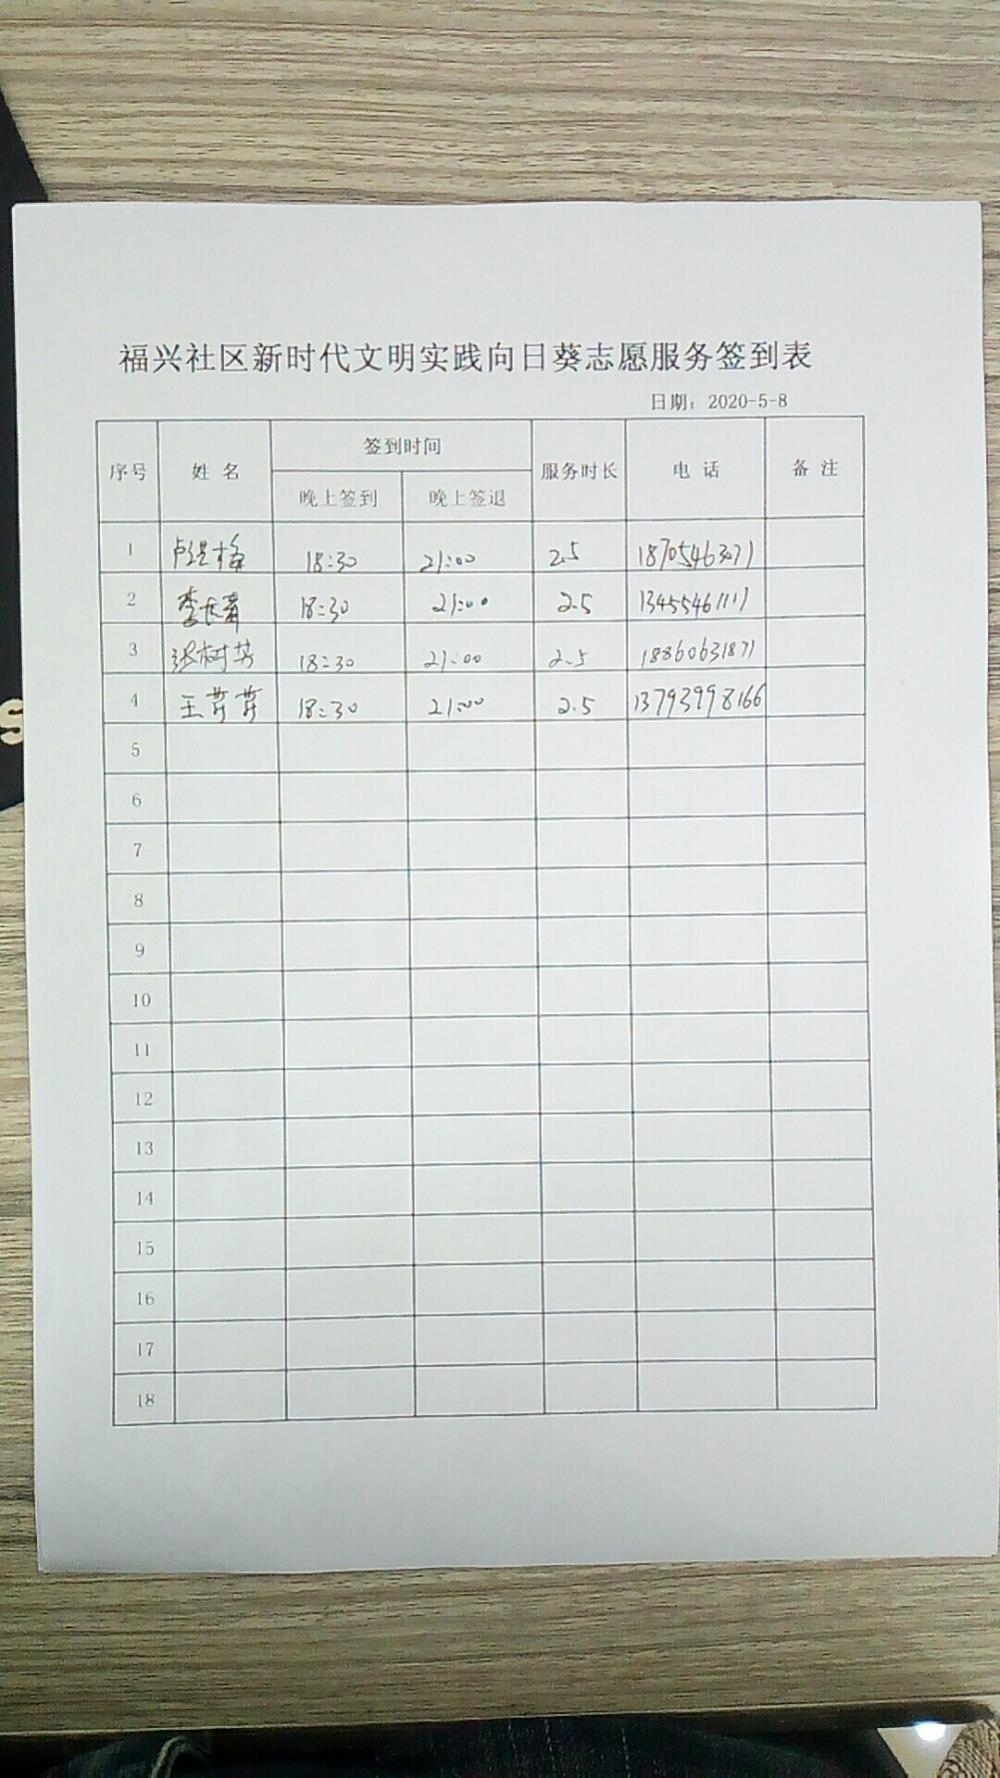 福兴社区新时代文明实践向日葵志愿服务签到表
日期：2020-5-8
序号 姓名 签到时间 服务时长 电话 备注
晚上签到 晚上签退
1 卢洪梅 18:30 21:00 2.5 18705463071
2 李长青 18:30 21:00 2.5 13455461111
3 张树芳 18:30 21:00 2.5 18860631871
4 王芹芹 18:30 21:00 2.5 13793998166
5
6
7
8
9
10
11
12
13
14
15
16
17
18
S